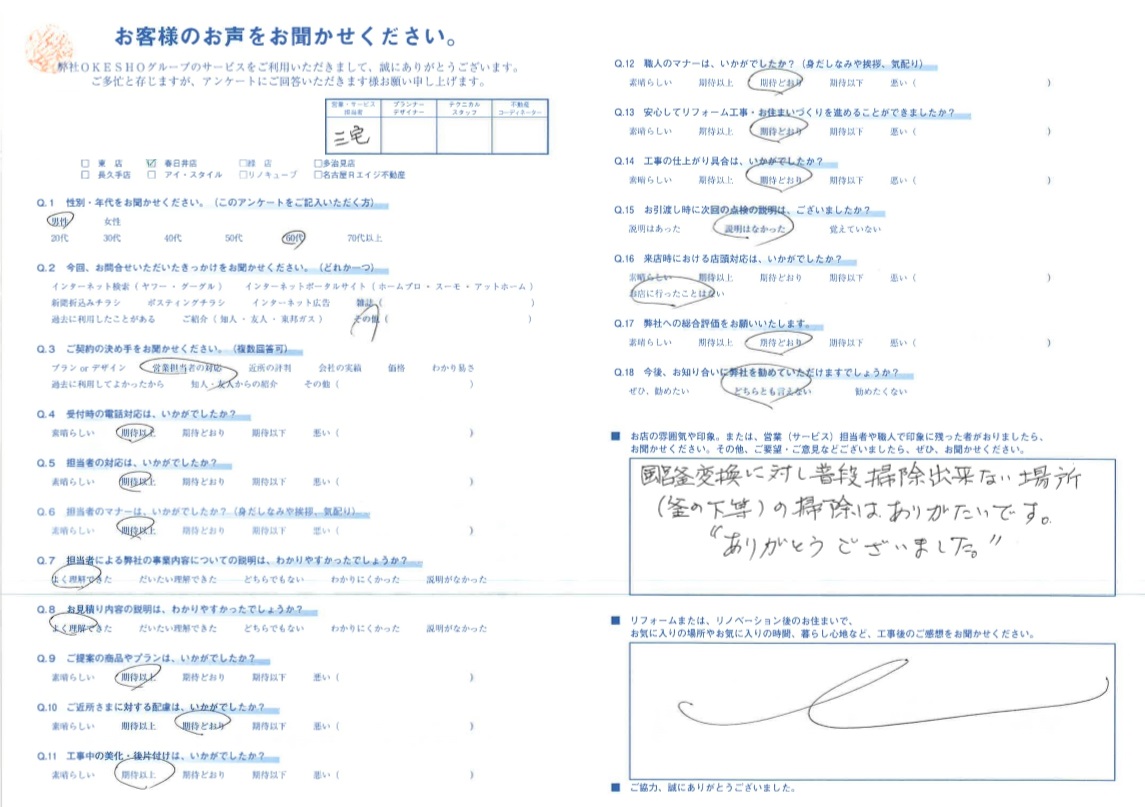 お客様のお声をお聞かせください。
弊社ＯＫＥＳＨＯグループのサービスをご利用いただきまして、誠にありがとうございます。
ご多忙と存じますが、アンケートにご回答いただきます様お願い申し上げます。
営業・サービス担当者 プランナーデザイナー テクニカルスタッフ 不動産コーディネーター
三宅
□ 東　店 ☑ 春日井店 □緑　店 □多治見店
□ 長久手店 □ アイ・スタイル □リノキューブ □名古屋Ｒエイジ不動産
Q.1 性別・年代をお聞かせください。（このアンケートをご記入いただく方）
男性 女性
20代 30代 40代 50代 60代 70代以上
Q.2 今回、お問合せいただいたきっかけをお聞かせください。（どれか一つ）
インターネット検索（ ヤフー ・ グーグル ） インターネットポータルサイト（ ホームプロ ・ スーモ ・ アットホーム ）
新聞折込みチラシ ポスティングチラシ インターネット広告 雑誌（ ）
過去に利用したことがある ご紹介（ 知人 ・ 友人 ・ 東邦ガス ） その他（ ）
Q.3 ご契約の決め手をお聞かせください。（複数回答可）
プラン or デザイン 営業担当者の対応 近所の評判 会社の実績 価格 わかり易さ
過去に利用してよかったから 知人・友人からの紹介 その他（ ）
Q.4 受付時の電話対応は、いかがでしたか？
素晴らしい 期待以上 期待どおり 期待以下 悪い（ ）
Q.5 担当者の対応は、いかがでしたか？
素晴らしい 期待以上 期待どおり 期待以下 悪い（ ）
Q.6 担当者のマナーは、いかがでしたか？（身だしなみや挨拶、気配り）
素晴らしい 期待以上 期待どおり 期待以下 悪い（ ）
Q.7 担当者による弊社の事業内容についての説明は、わかりやすかったでしょうか？
よく理解できた だいたい理解できた どちらでもない わかりにくかった 説明がなかった
Q.8 お見積り内容の説明は、わかりやすかったでしょうか？
よく理解できた だいたい理解できた どちらでもない わかりにくかった 説明がなかった
Q.9 ご提案の商品やプランは、いかがでしたか？
素晴らしい 期待以上 期待どおり 期待以下 悪い（ ）
Q.10 ご近所さまに対する配慮は、いかがでしたか？
素晴らしい 期待以上 期待どおり 期待以下 悪い（ ）
Q.11 工事中の美化・後片付けは、いかがでしたか？
素晴らしい 期待以上 期待どおり 期待以下 悪い（ ）
Q.12 職人のマナーは、いかがでしたか？（身だしなみや挨拶、気配り）
素晴らしい 期待以上 期待どおり 期待以下 悪い（ ）
Q.13 安心してリフォーム工事・お住まいづくりを進めることができましたか？
素晴らしい 期待以上 期待どおり 期待以下 悪い（ ）
Q.14 工事の仕上がり具合は、いかがでしたか？
素晴らしい 期待以上 期待どおり 期待以下 悪い（ ）
Q.15 お引渡し時に次回の点検の説明は、ございましたか？
説明はあった 説明はなかった 覚えていない
Q.16 来店時における店頭対応は、いかがでしたか？
素晴らしい 期待以上 期待どおり 期待以下 悪い（ ）
お店に行ったことはない
Q.17 弊社への総合評価をお願いいたします。
素晴らしい 期待以上 期待どおり 期待以下 悪い（ ）
Q.18 今後、お知り合いに弊社を勧めていただけますでしょうか？
ぜひ、勧めたい どちらとも言えない 勧めたくない
■ お店の雰囲気や印象。または、営業（サービス）担当者や職人で印象に残った者がおりましたら、
お聞かせください。その他、ご要望・ご意見などございましたら、ぜひ、お聞かせください。
風呂釜変換に対し普段掃除出来ない場所
（釜の下等）の掃除はありがたいです。
“ありがとうございました。”
■ リフォームまたは、リノベーション後のお住まいで、
お気に入りの場所やお気に入りの時間、暮らし心地など、工事後のご感想をお聞かせください。
■ ご協力、誠にありがとうございました。